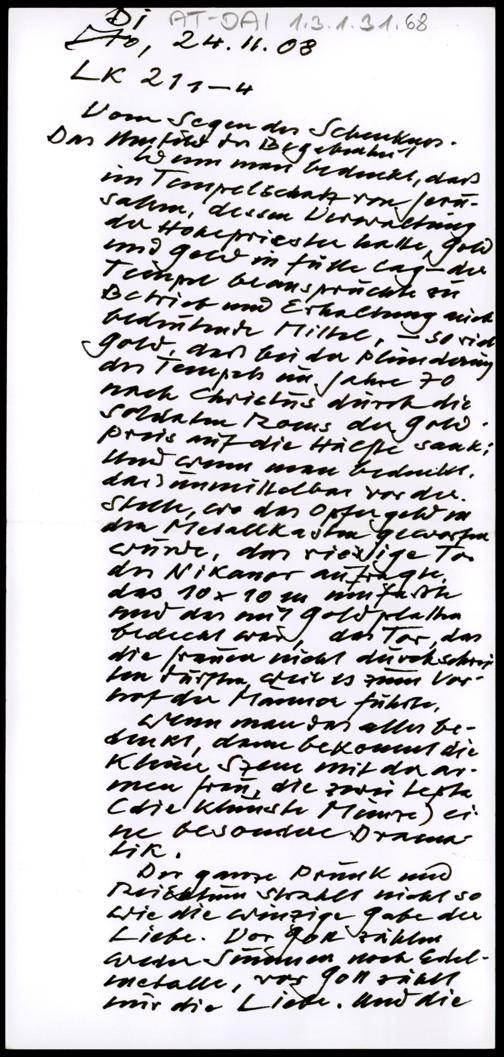 Di AT-DAI 1.3.1.31.68
24.11.08
LK 21 1-4
Vom Segen des Schenkens.
Das Umfeld der Begebenheit
Wenn man bedenkt, daß
im Tempelschatz von Jeru-
salem, dessen Verwaltung
der Hohepriester hatte, Gold
und Geld in Fülle lag – der
Tempel beanspruchte zu
Betrieb und Erhaltung auch
bedeutende Mittel, – so viel
Gold, daß bei der Plünderung
des Tempels im Jahre 70
nach Christus durch die
Soldaten Roms der Gold-
preis auf die Hälfte sank;
und wenn man bedenkt,
daß unmittelbar vor der
Stelle, wo das Opfergeld in
den Metallkasten geworfen
wurde, das riesige Tor
des Nikanor aufragte,
das 10 x 10 m umfaßte
und das mit Goldplatten
bedeckt war, das Tor, das
die Frauen nicht durchschrei-
ten durften, weil es zum Vor-
hof der Männer führte.
Wenn man das alles be-
denkt, dann bekommt die
kleine Szene mit der ar-
men Frau, die zwei Lepta
(die kleinste Münze) ei-
ne besondere Drama-
tik.
Der ganze Prunk und
Reichtum strahlt nicht so
wie die winzige Gabe der
Liebe. Vor Gott zählen
weder Summen noch Edel-
metalle, vor Gott zählt
nur die Liebe. Und die